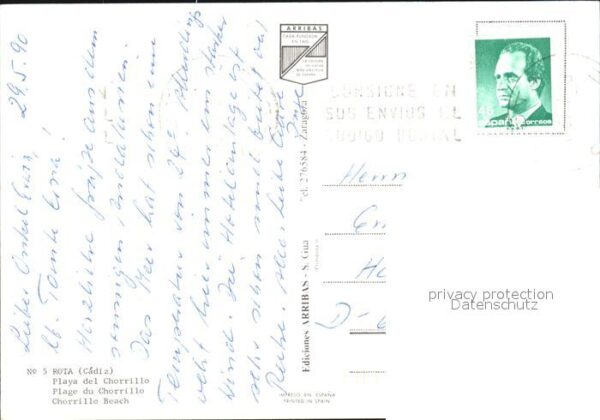 29.5.90
Lieber Onkel
lb. Tante
Herzliche Grüße aus dem
sonnigen Andalusien.
Das Meer hat schon eine
Temperatur von 24° Allerdings
weht hier immer ein starker
Wind. Die Hotelanlage ist
sehr schön und bietet viel
Ruhe. Alles Liebe Eure
ARRIBAS
CASA FUNDADA
EN 1940
Ediciones ARRIBAS - S. Gua
Tel. 276584 - Zaragoza
CONSIGNE EN
SUS ENVIOS EL
CODIGO POSTAL
España correos
Herrn
D-6
privacy protection
Datenschutz
Nº 5 ROTA (Cádiz)
Playa del Chorrillo
Plage du Chorrillo
Chorrillo Beach
IMPRESO EN ESPAÑA
PRINTED IN SPAIN